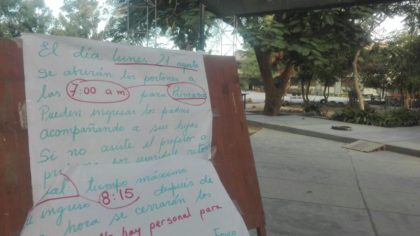 El día lunes 21 agosto
se abrirán los portones a
las 7:00 am para Primaria
Pueden ingresar los padres
acompañando a sus hijos
Si no asiste el profesor o
por
tiempo máximo
ingreso 8:15 después de
hora se cerrarán los
hay personal para